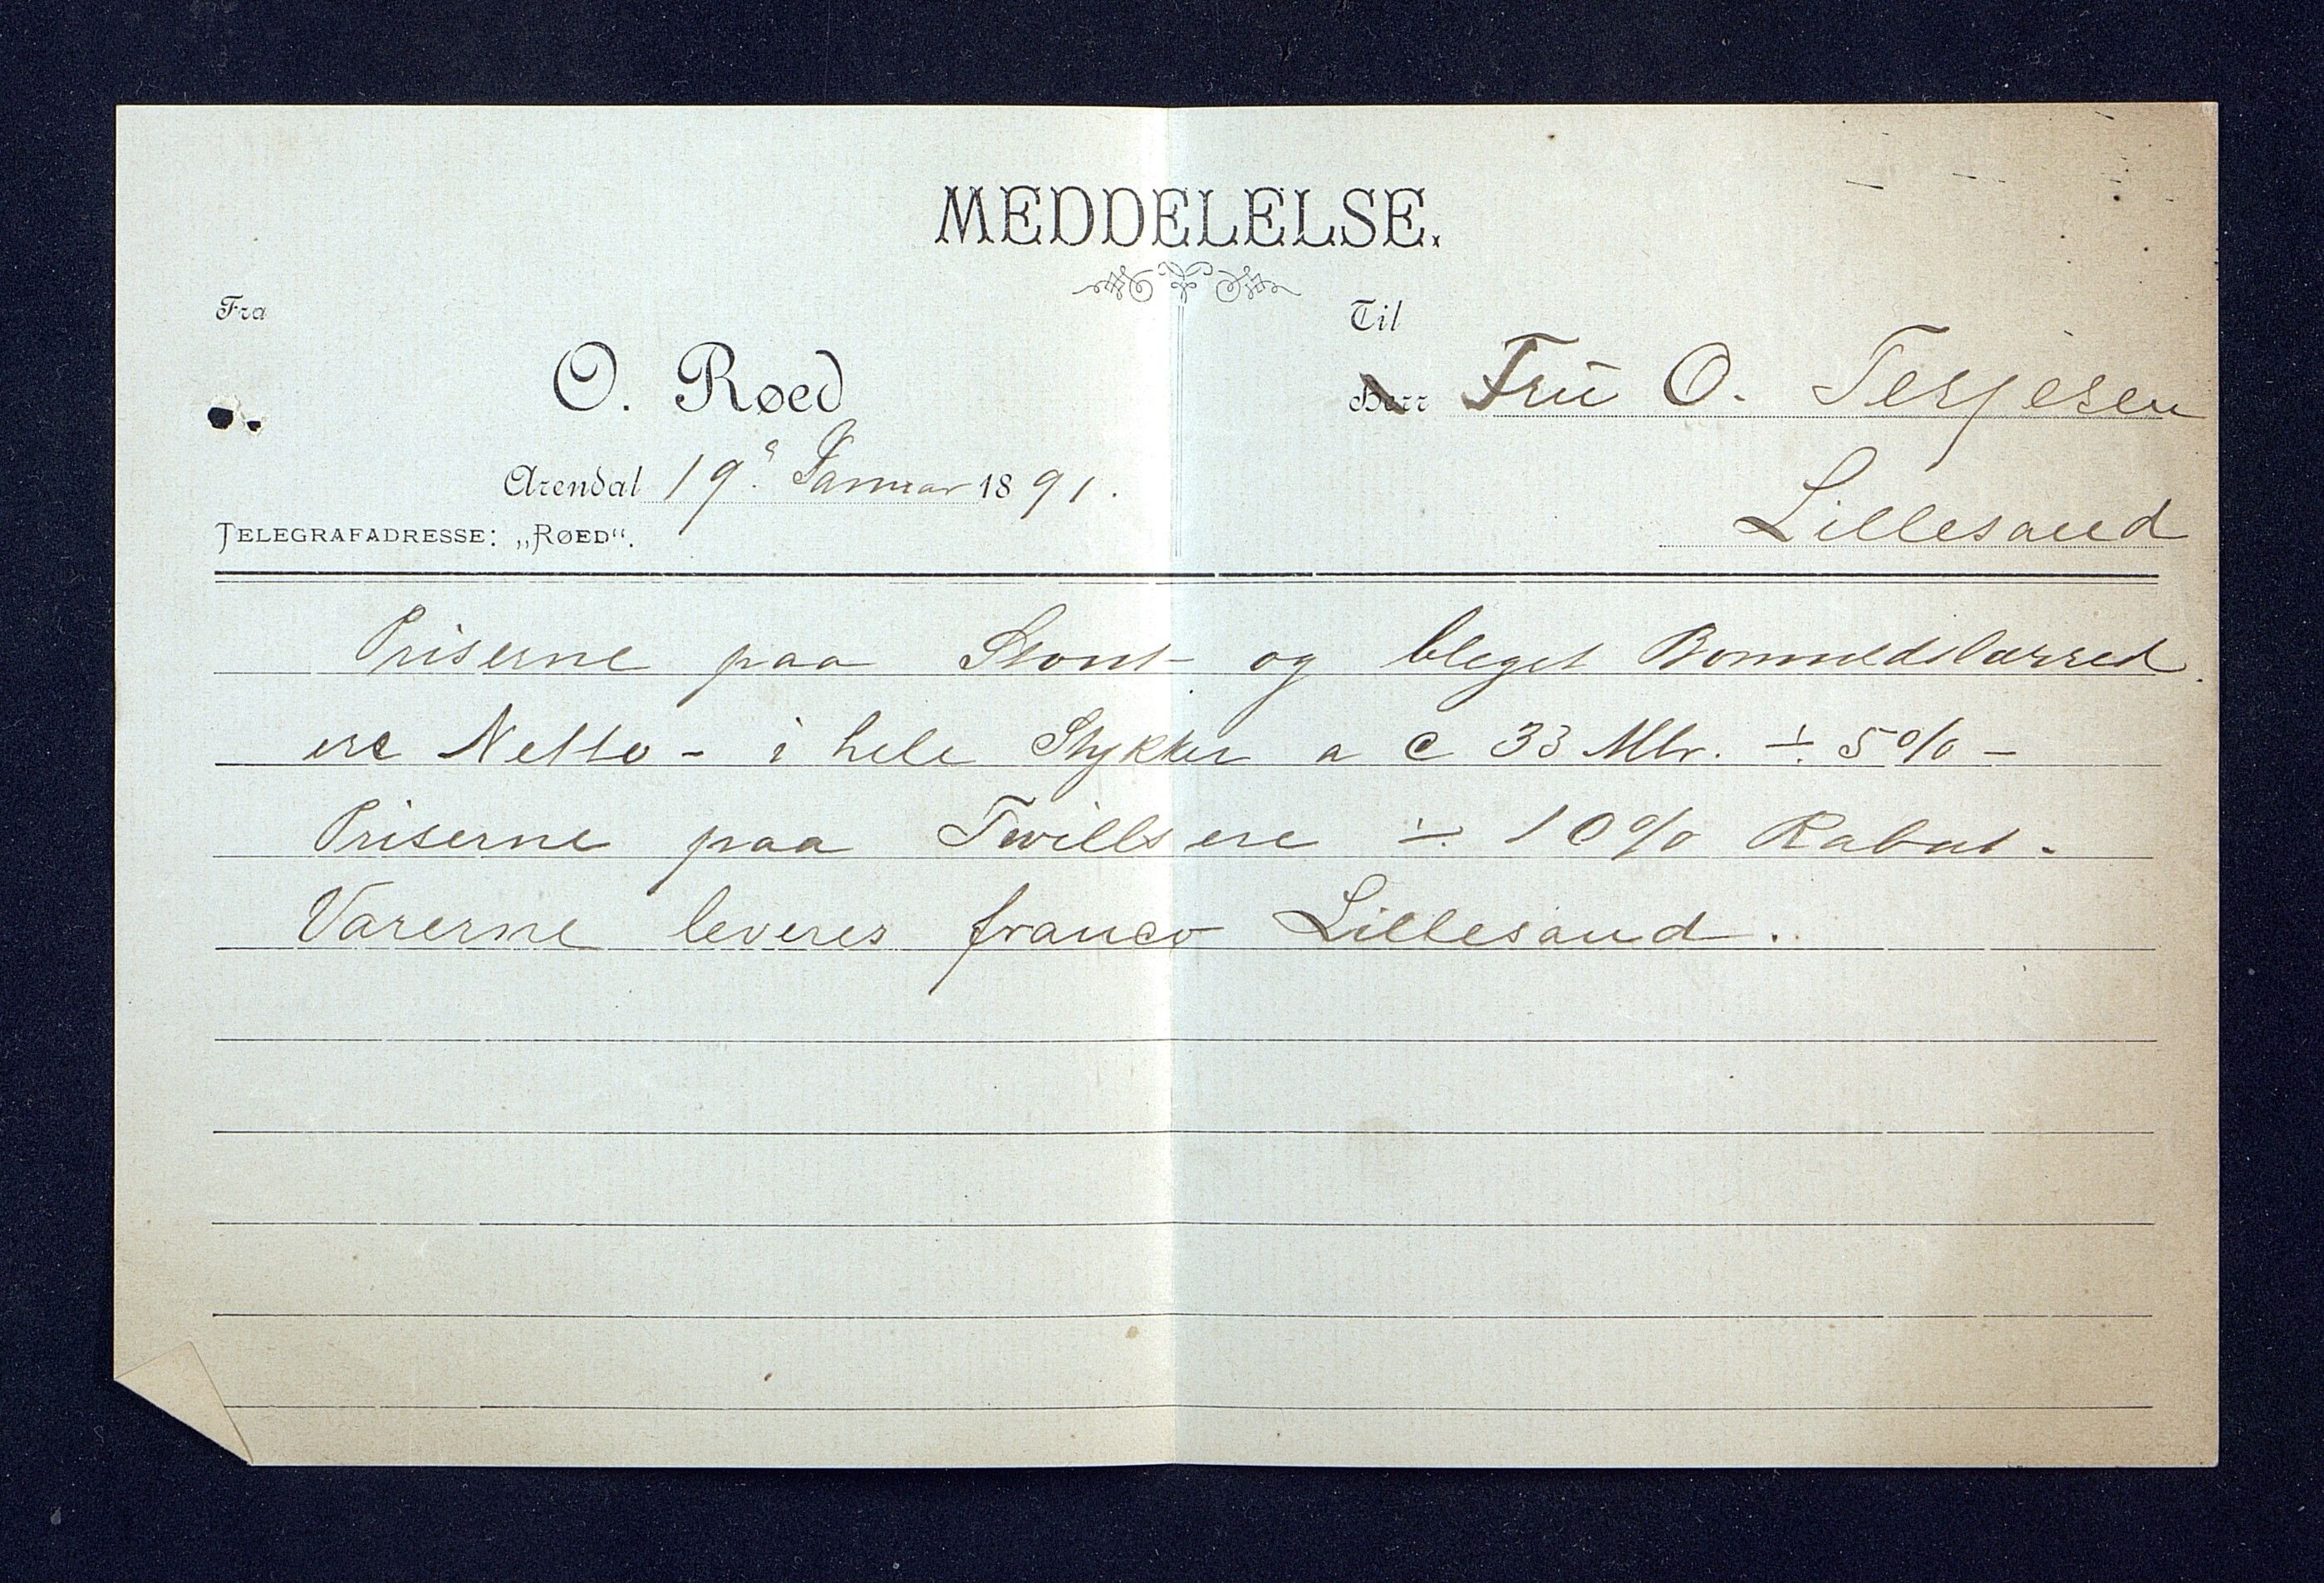 MEDDELELSE.
Fra
Til
O. Røed
Herr Frū O. Terjesen
Arendal 19ª Januar 1891.
Lillesand
TELEGRAFADRESSE: „RØED“.
Priserne paa Stout og bleget Bomuldslærred
ere Netto - i hele Stykker a c 33 Mtr. ÷ 5% -
Priserne paa Twills ere ÷ 10% Rabat.
Varerne leveres franco Lillesand.